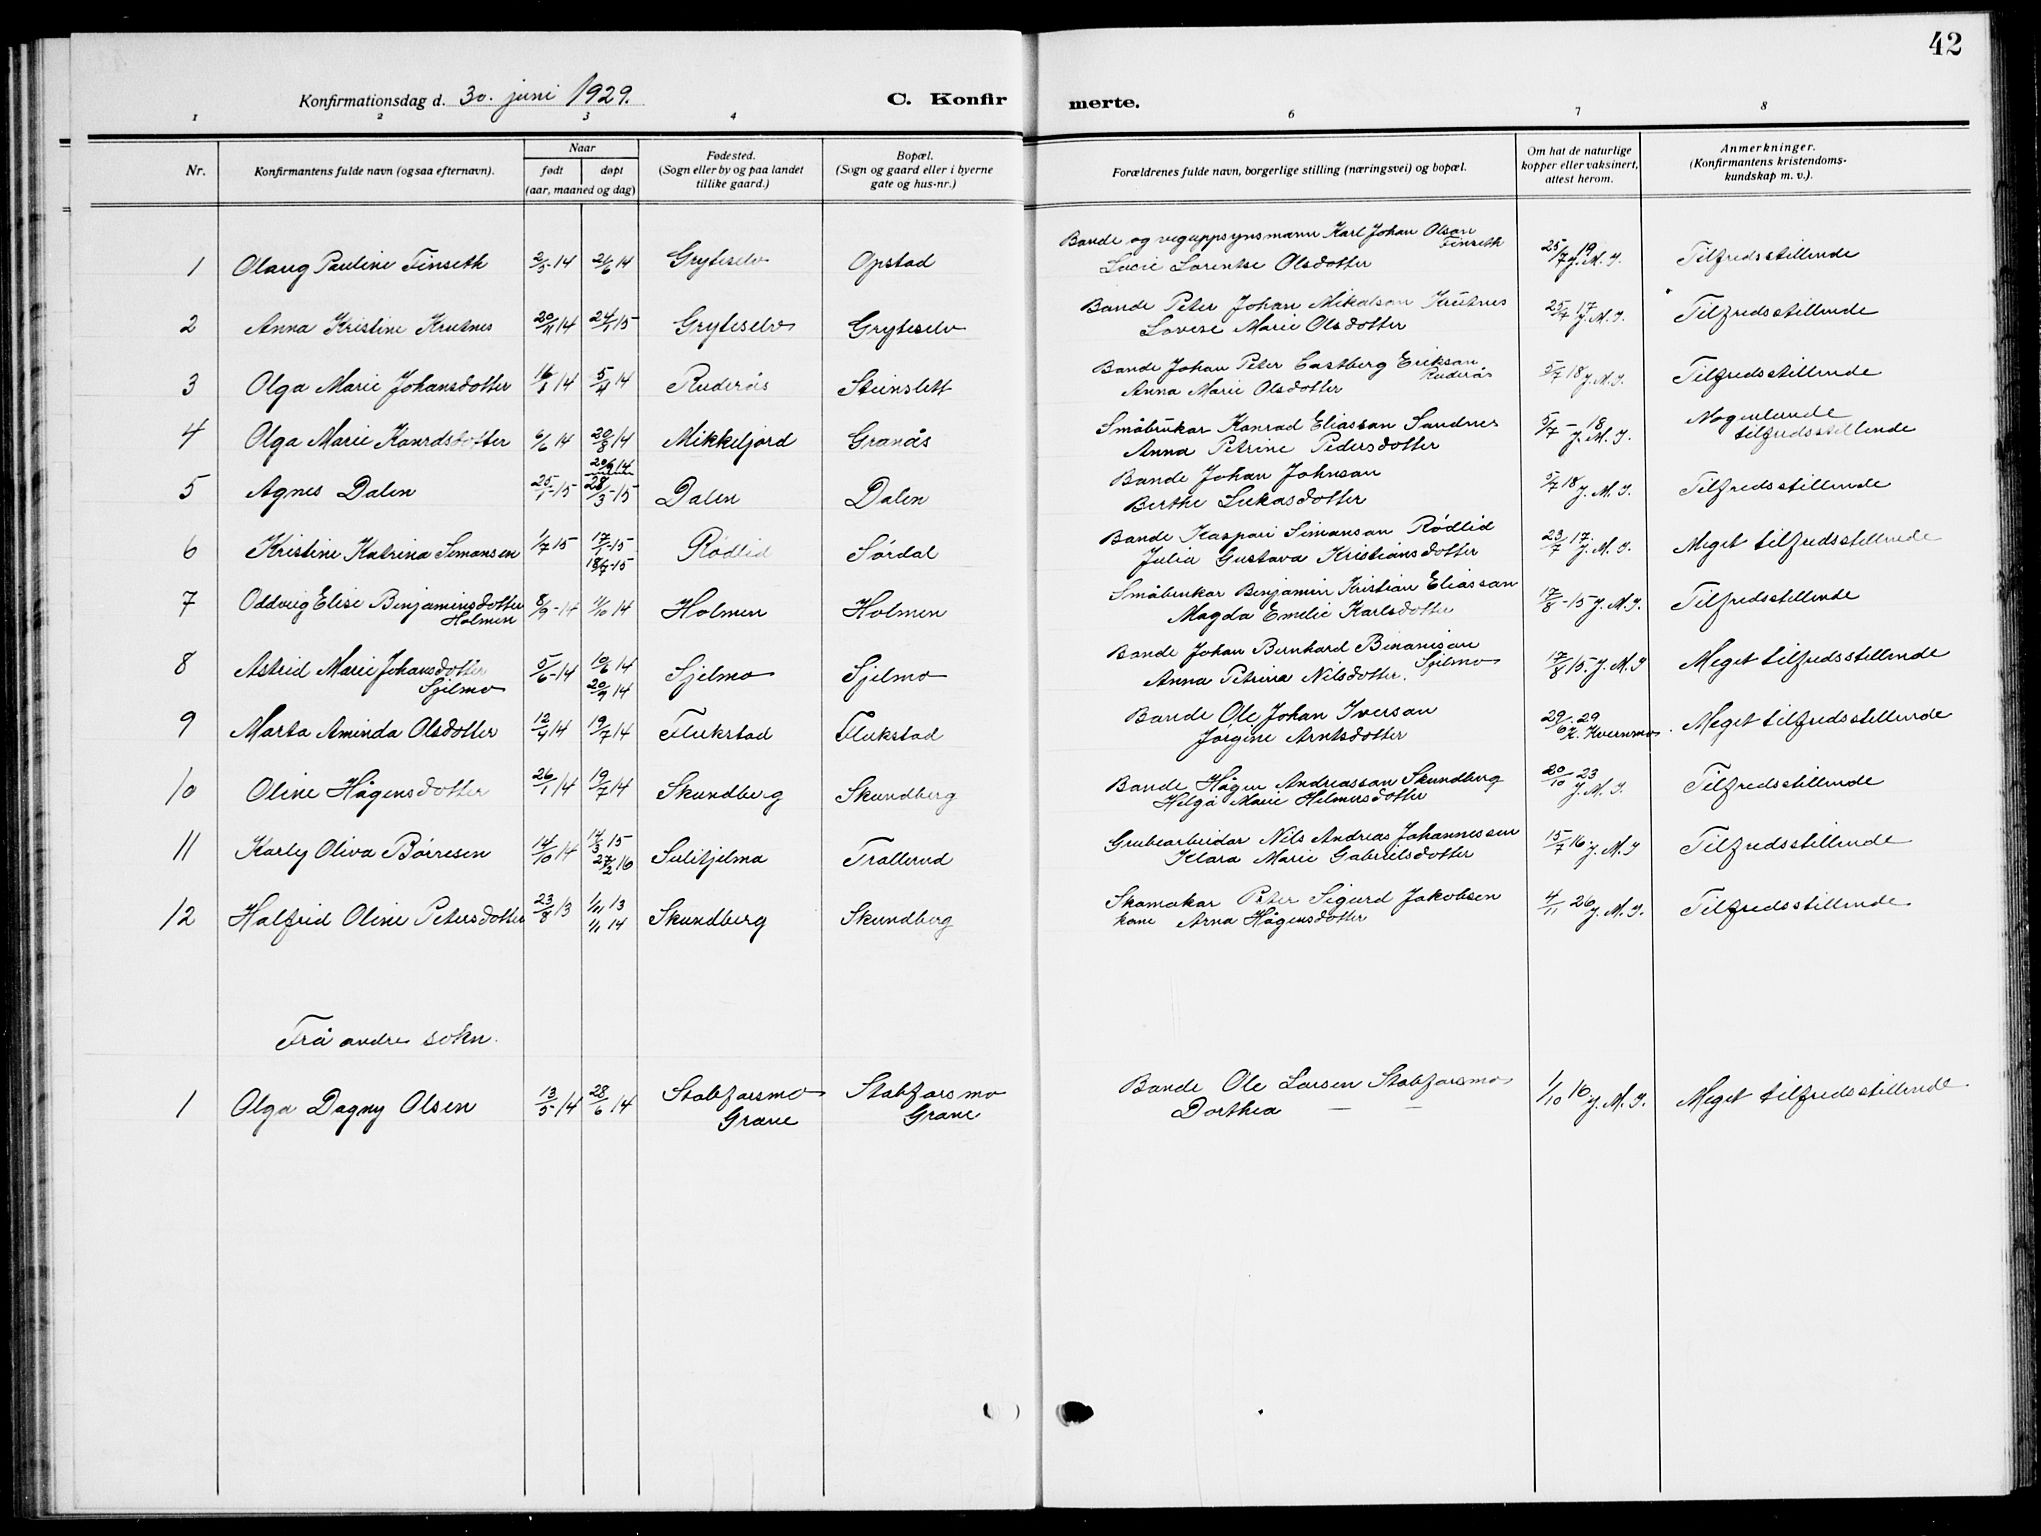 42
Konfirmationsdag d. 30. juni 1929.
C. Konfirmerte.
1 2 3 4 6 7 8
Nr.
Konfirmantens fulde navn (ogsaa efternavn).
Naar
født døpt
(aar, maaned og dag)
Fødested.
(Sogn eller by og paa landet
tillike gaard.)
Bopæl.
(Sogn og gaard eller i byerne
gate og hus-nr.)
Forældrenes fulde navn, borgerlige stilling (næringsvei) og bopæl.
Om hat de naturlige
kopper eller vaksinert,
attest herom.
Anmerkninger.
(Konfirmantens kristendoms-
kundskap m. v.).
1 Olaug Pauline Finseth 2/5-14 21/6 14 Gryteselv Opstad Bonde og veguppsynsmann Karl Johan Olsen Finseth 25/7 19 J. M. J. Tilfredsstillende
Lovie Lorentse Olsdotter
2 Anna Kristine Krutnes 20/11 14 24/1 15 Gryteselv Gryteselv Bonde Peter Johan Mikalson Krutnes 25/7 17 J. M. J. Tilfredsstillende
Lovise Marie Olsdotter
3 Olga Marie Johansdotter 16/1 14 5/4 14 Ruderås Steinslett Bonde Johan Peter Castberg Erikson Ruderås 5/7 18 J. M. J. Tilfredsstillende
Anna Marie Olsdotter
4 Olga Marie Konrdsdotter 6/6 14 20/8 14 Mikkeljord Granås Småbrukar Konrad Eliassan Sandnes 5/7-18 J. M. J. Nogenlunde
tilfredsstillende
20/9 14
Anna Petrine Pedersdotter
5 Agnes Dalen 25/1-15 28/3-15 Dalen Dalen Bonde Johan Johnsan 5/7 18 J. M. J. Tilfredsstillende
Berthe Lukasdotter
6 Kristine Katrina Simonsen 1/7 15 17/1-15 Rødlid Sørdal Bonde Kaspari Simonsan Rødlid 23/7 17. J. M. J. Meget tilfredsstillende
18/7-15
Julia Gustava Kristiansdotter
7 Oddveig Elise Benjaminsdotter Holmen 8/9-14 11/10 14 Holmen Holmen Småbrukar Benjamin Kristian Eliassan 17/8-15 J. M. J. Tilfredsstillende
Magda Emelie Karlsdotter
8 Astrid Marie Johansdotter Sjelmo 5/6-14 10/6 14 Sjelmo Sjelmo Bonde Johan Bernhard Benonison Sjelmo 17/8 15. J. M. J Meget tilfredsstillende
20/9 14
Anna Petrina Nilsdotter.
9 Marta Aminda Olsdotter 12/4 14 19/7 14 Flukstad Flukstad Bonde Ole Johan Iversan 29/6 29 K. Kvernmo. Meget tilfredsstillende
Jørgine Arntsdotter
10 Oline Hågensdotter 26/1 14 19/7 14 Skundberg Skundberg Bonde Hågen Andreassan Skundberg 20/10 23 J. M. J. Tilfredsstillende
Helga Marie Helmersdotter
11 Karly Oliva Børresen 14/10 14 14/3 15 Sulitjelma Trallerud Grubearbeidar Nils Andreas Johannessen 15/7 16 J. M. J Tilfredsstillende
27/2 16
Klara Marie Gabrielsdotter
12 Halfrid Oline Petersdotter 23/8 13 1/11 13 Skundberg Skundberg Skomakar Peter Sigurd Jakobsen 4/11 26 J. M. J. Tilfredsstillende
1/1 14
kone Arna Hågensdotter
Frå andre sokn.
1 Olga Dagny Olsen 13/5-14 28/6 14 Stabforsmo Stabforsmo Bonde Ole Larsen Stabforsmo 1/10 16 J. M. J. Meget tilfredsstillende
Grane Grane Dorthea — —